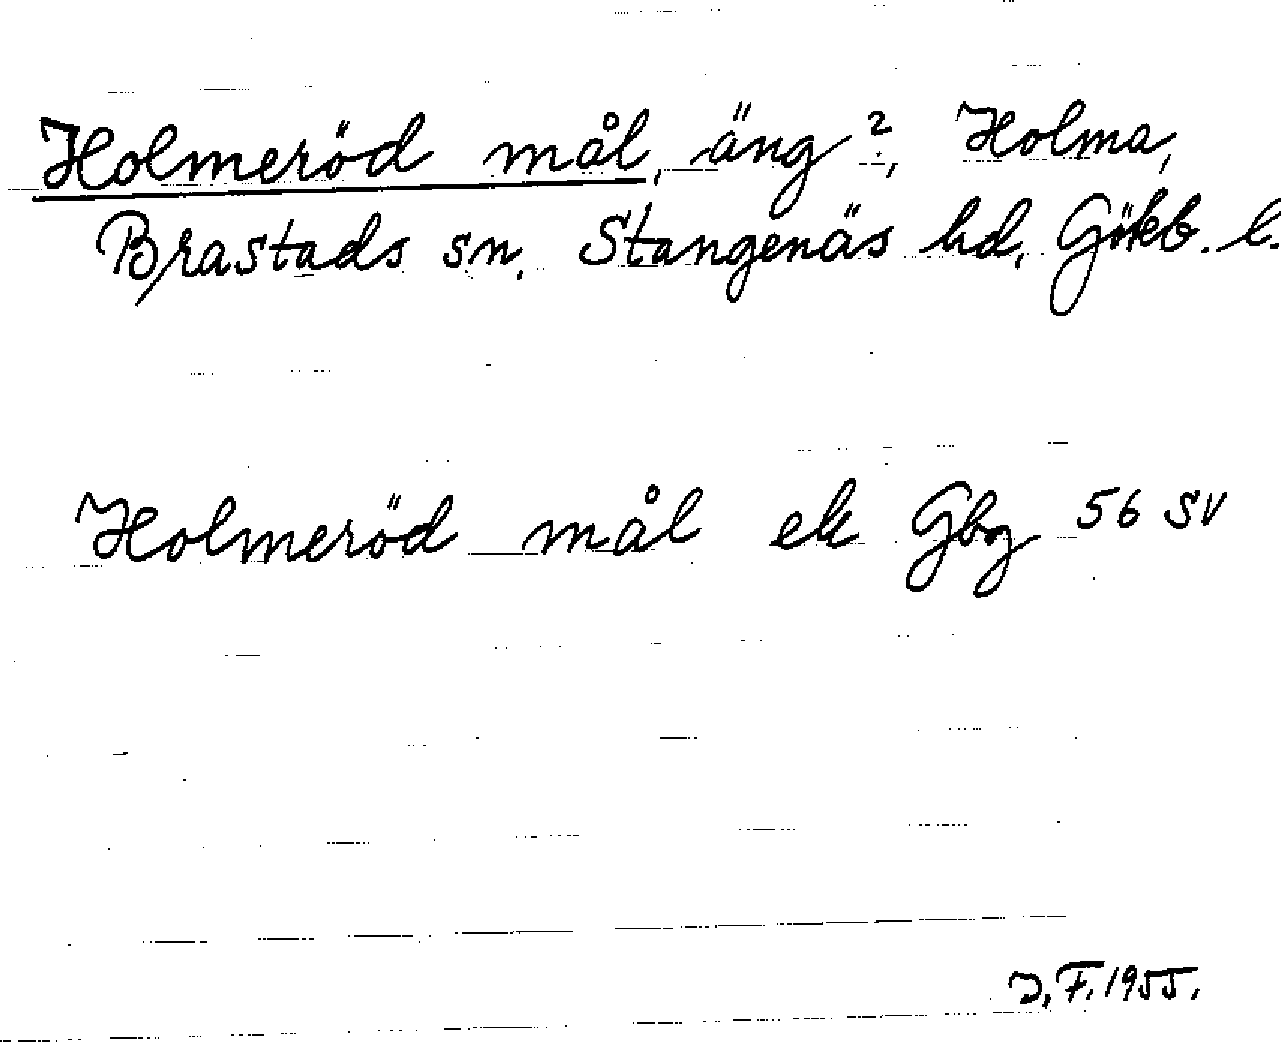 Holmeröd mål, äng?, Holma,
Brastads sn. Stangenäs hd. Gökb. l.
Holmeröd mål ek Gbg 56 SV
J. F. 1955.